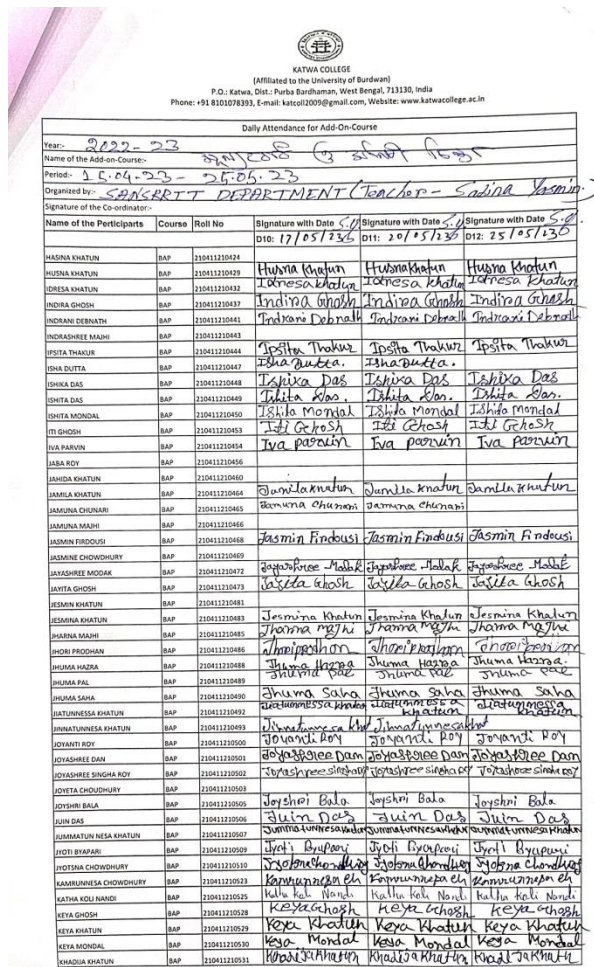 KATWA COLLEGE
(Affiliated to the University of Burdwan)
P.O.: Katwa, Dist.: Purba Bardhaman, West Bengal, 713130, India
Phone: +91 8101078393, E-mail: katcoll2009@gmail.com, Website: www.katwacollege.ac.in
Daily Attendance for Add-On-Course
Year:- 2022-23
Name of the Add-on-Course:- ও
Period:- 15.04.23 - 25.05.23
Organized by:- SANSKRIT DEPARTMENT (Teacher - Yasmin.)
Signature of the Co-ordinator:-
Name of the Perticipants Course Roll No Signature with Date Signature with Date Signature with Date
D10: 17/05/23 D11: 20/05/23 D12: 25/05/23
HASINA KHATUN BAP 210411210424
HUSNA KHATUN BAP 210411210429 Husna Khatun Husna Khatun Husna Khatun
IDRESA KHATUN BAP 210411210432 Idresa Khatun Idresa Khatun Idresa Khatun
INDIRA GHOSH BAP 210411210437 Indira Ghosh Indira Ghosh Indira Ghosh
INDRANI DEBNATH BAP 210411210441 Indrani Debnath Indrani Debnath Indrani Debnath
INDRASHREE MAJHI BAP 210411210443
IPSITA THAKUR BAP 210411210444 Ipsita Thakur Ipsita Thakur Ipsita Thakur
ISHA DUTTA BAP 210411210447 Isha Dutta. Isha Dutta.
ISHIKA DAS BAP 210411210448 Ishika Das Ishika Das Ishika Das
ISHITA DAS BAP 210411210449 Ishita Das. Ishita Das. Ishita Das.
ISHITA MONDAL BAP 210411210450 Ishita Mondal Ishita Mondal Ishita Mondal
ITI GHOSH BAP 210411210453 Iti Ghosh Iti Ghosh Iti Ghosh
IVA PARVIN BAP 210411210454 Iva parvin Iva parvin Iva parvin
JABA ROY BAP 210411210456
JAHIDA KHATUN BAP 210411210460
JAMILA KHATUN BAP 210411210464 Jamila Khatun Jamila Khatun Jamila Khatun
JAMUNA CHUNARI BAP 210411210465 Jamuna Chunari Jamuna Chunari
JAMUNA MAJHI BAP 210411210466
JASMIN FIRDOUSI BAP 210411210468 Jasmin Firdousi Jasmin Firdousi Jasmin Firdousi
JASMINE CHOWDHURY BAP 210411210469
JAYASHREE MODAK BAP 210411210472 Jayashree Modak Jayashree Modak Jayashree Modak
JAYITA GHOSH BAP 210411210473 Jayita Ghosh Jayita Ghosh Jayita Ghosh
JESMIN KHATUN BAP 210411210481
JESMINA KHATUN BAP 210411210483 Jesmina Khatun Jesmina Khatun Jesmina Khatun
JHARNA MAJHI BAP 210411210485 Jharna Majhi Jharna Majhi Jharna Majhi
JHORI PRODHAN BAP 210411210486 Jhori prodhan Jhori prodhan Jhori prodhan
JHUMA HAZRA BAP 210411210488 Jhuma Hazra Jhuma Hazra Jhuma Hazra.
JHUMA PAL BAP 210411210489 Jhuma Pal Jhuma Pal Jhuma Pal
JHUMA SAHA BAP 210411210490 Jhuma Saha Jhuma Saha Jhuma Saha
JIATUNNESSA KHATUN BAP 210411210492 Jiatunnessa khatun Jiatunnessa khatun Jiatunnessa khatun
JINNATUNNESA KHATUN BAP 210411210493
JOYANTI ROY BAP 210411210500 Joyanti Roy Joyanti Roy Joyanti Roy
JOYASHREE DAN BAP 210411210501 Joyashree Dan Joyashree Dan Joyashree Dan
JOYASHREE SINGHA ROY BAP 210411210502 Joyashree singha Roy Joyashree singha Roy Joyashree singha Roy
JOYETA CHOUDHURY BAP 210411210503
JOYSHRI BALA BAP 210411210505 Joyshri Bala Joyshri Bala Joyshri Bala
JUIN DAS BAP 210411210506 Juin Das Juin Das Juin Das
JUMMATUN NESA KHATUN BAP 210411210507 Jummatunnesa Khatun Jummatunnesa Khatun Jummatunnesa Khatun
JYOTI BYAPARI BAP 210411210509 Jyoti Byapari Jyoti Byapari Jyoti Byapari
JYOTSNA CHOWDHURY BAP 210411210510
KAMRUNNESA CHOWDHURY BAP 210411210523 Kamrunnesa ch Kamrunnesa ch Kamrunnesa ch
KATHA KOLI NANDI BAP 210411210525 Katha Koli Nandi Katha Koli Nandi Katha Koli Nandi
KEYA GHOSH BAP 210411210528 Keya Ghosh Keya Ghosh Keya Ghosh
KEYA KHATUN BAP 210411210529 Keya Khatun Keya Khatun Keya Khatun
KEYA MONDAL BAP 210411210530 Keya Mondal Keya Mondal Keya Mondal
KHADIJA KHATUN BAP 210411210531 Khadija Khatun Khadija Khatun Khadija Khatun